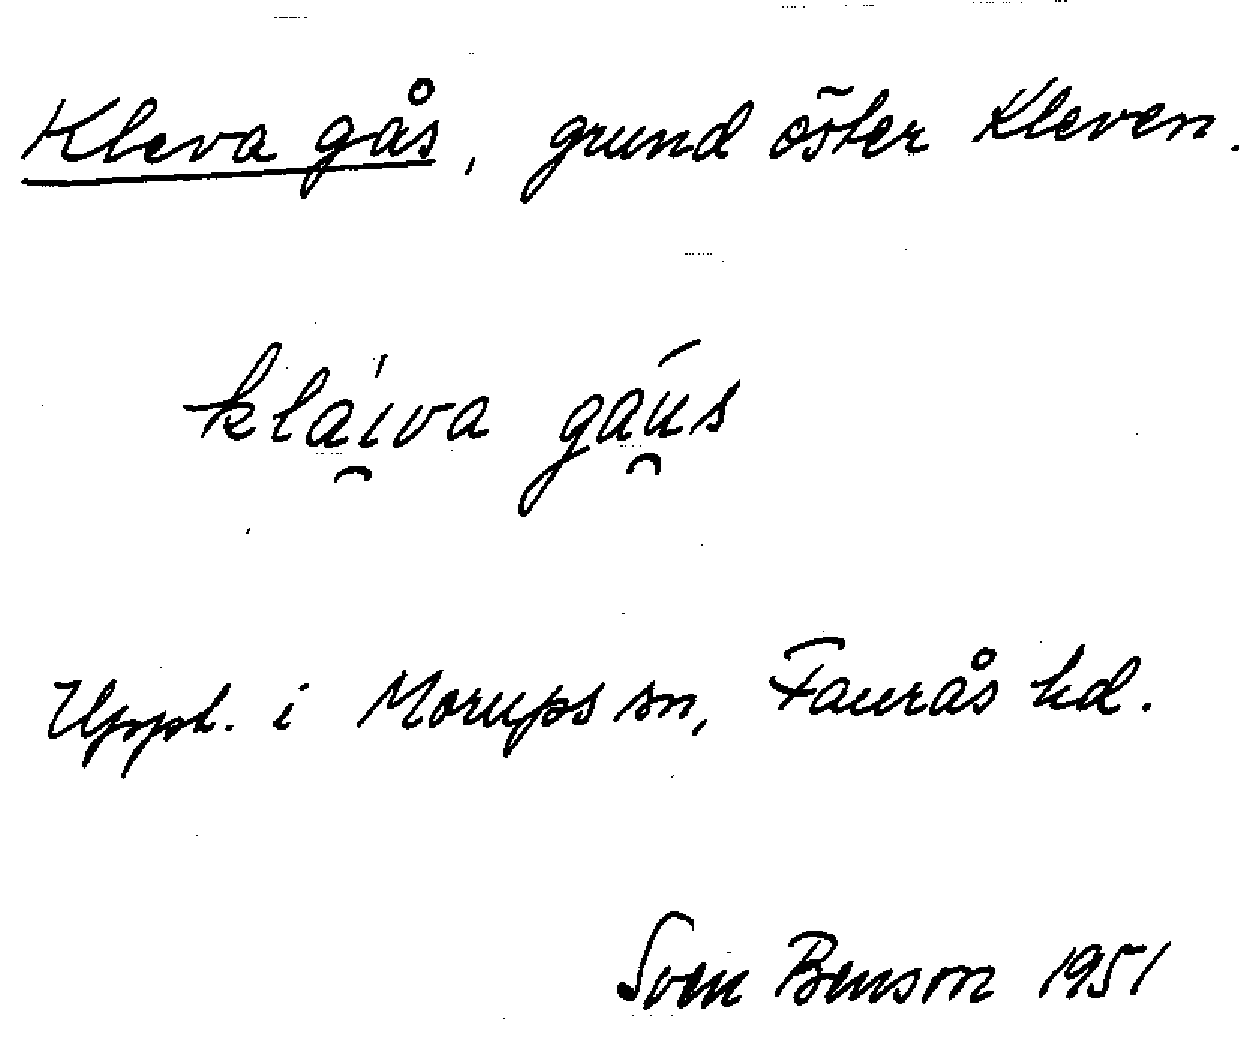 Kleva gås, grund öster Kleven.
kla̯iva gau̯s
Uppt. i Morups sn, Faurås hd.
Sven Benson 1951